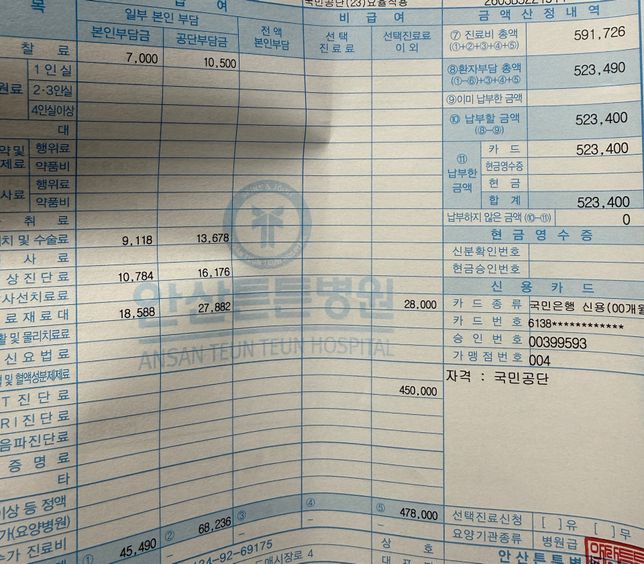 국민공단(23)요율적용
목 급 여 비 급 여 금 액 산 정 내 역
일부 본인 부담 전 액 본인부담 선 택 진 료 료 선택진료료 이 외
본인부담금 공단부담금
찰 료 7,000 10,500
1 인 실
원료 2·3인실
4인실이상
대
약 및 행위료
제료 약품비
행위료
사료 약품비
취 료
치 및 수술료 9,118 13,678
사 료
상 진 단 료 10,784 16,176
사선치료료
료 재 료 대 18,588 27,882 28,000
활 및 물리치료료
신 요 법 료
및 혈액성분제제료
T 진 단 료 450,000
R I 진 단 료
음파진단료
증 명 료
타
이상 등 정액
가(요양병원)
수가 진료비
① 45,490 ② 68,236 ③ ④ ⑤ 478,000
⑦ 진료비 총액 (①+②+③+④+⑤) 591,726
⑧환자부담 총액 (①-⑥)+③+④+⑤ 523,490
⑨이미 납부한 금액
⑩ 납부할 금액 (⑧-⑨) 523,400
⑪ 납부한 금액
카 드 523,400
현금영수증
현 금
합 계 523,400
납부하지 않은 금액 (⑩-⑪) 0
현 금 영 수 증
신분확인번호
현금승인번호
신 용 카 드
카 드 종 류 국민은행 신용(00개월
카 드 번 호 6138************
승 인 번 호 00399593
가 맹 점 번 호 004
자격 : 국민공단
선택진료신청 [ ] 유 [ ] 무
요양기관종류 병원급
안산튼튼병원
ANSAN TEUN TEUN HOSPITAL
134-92-69175
상 호 안 산 튼 튼 병
도매시장로 4
대 표